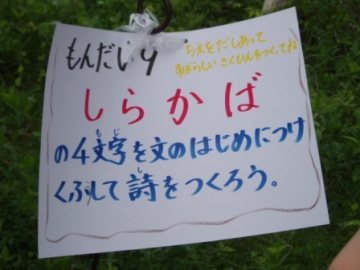 もんだい9
ちえをだしあって
すばらしいさくひんをつくってね
しらかば
の4文字を文のはじめにつけ
もじ
くふして詩をつくろう。
し